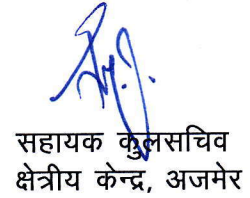 सहायक कुलसचिव
क्षेत्रीय केन्द्र, अजमेर